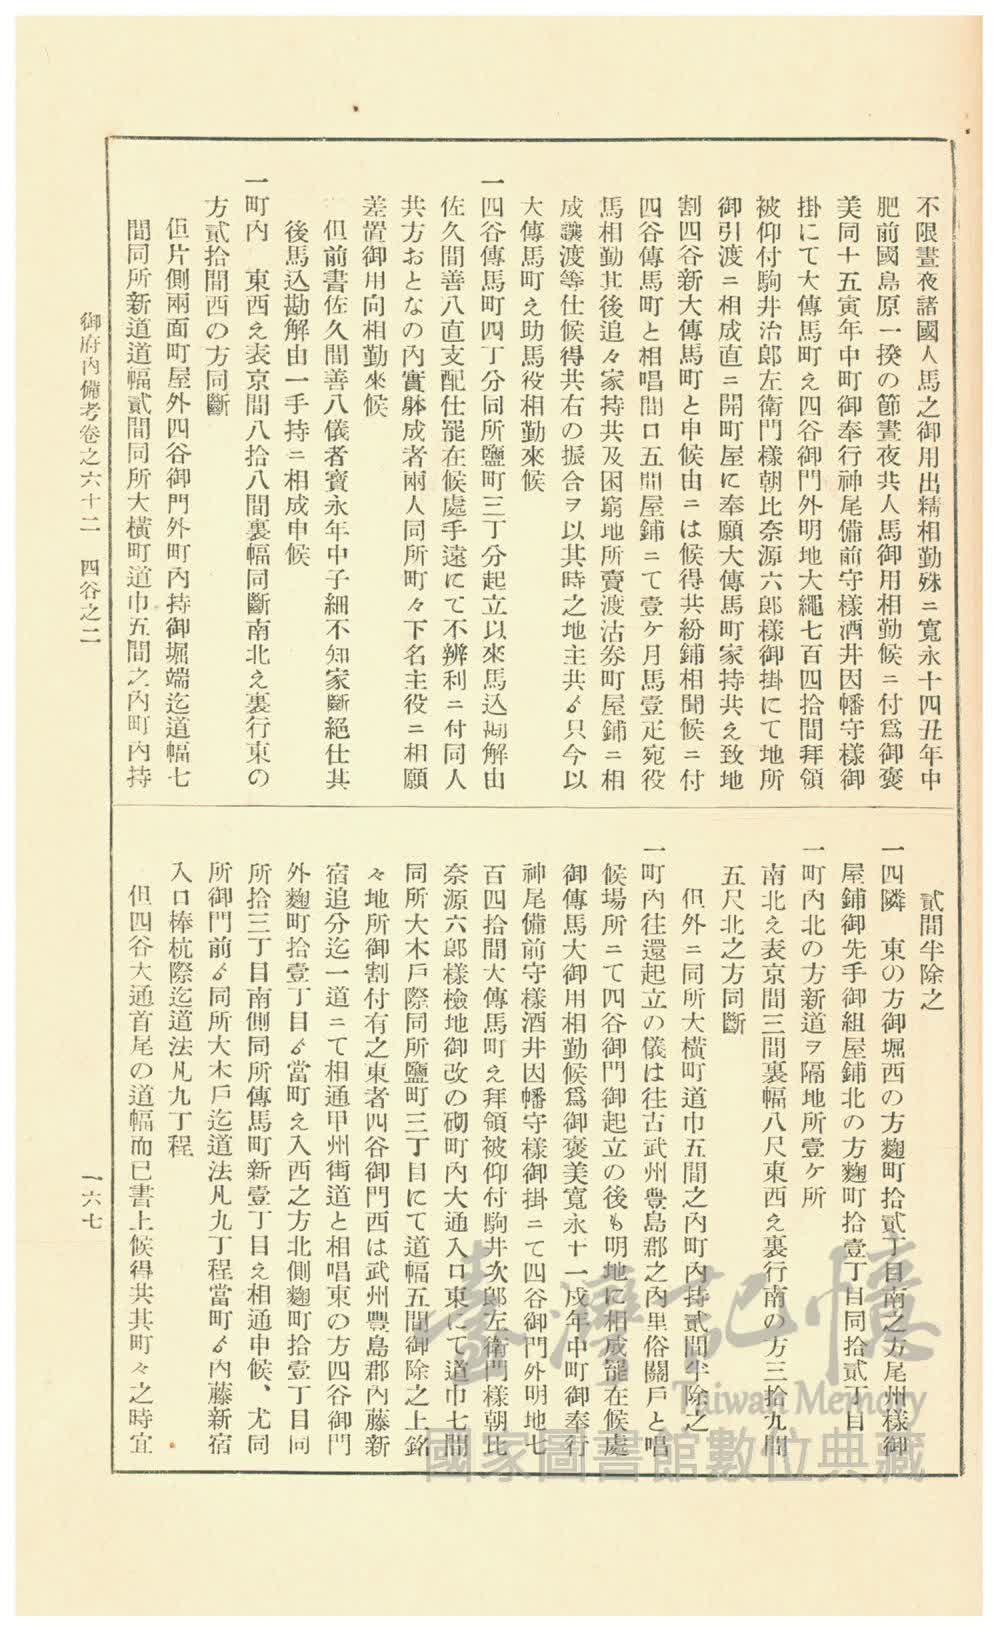 不限晝夜諸國人馬之御用出精相勤殊ニ寬永十四丑年中
肥前國島原一揆の節晝夜共人馬御用相勤候ニ付爲御褒
美同十五寅年中町御奉行神尾備前守樣酒井因幡守樣御
掛にて大傳馬町え四谷御門外明地大繩七百四拾間拜領
被仰付駒井治郞左衛門樣朝比奈源六郞樣御掛にて地所
御引渡ニ相成直ニ開町屋に奉願大傳馬町家持共え致地
割四谷新大傳馬町と申候由ニは候得共紛鋪相聞候ニ付
四谷傳馬町と相唱間口五間屋鋪ニて壹ケ月馬壹疋宛役
馬相勤其後追々家持共及困窮地所賣渡沽券町屋鋪ニ相
成讓渡等仕候得共右の振合ヲ以其時之地主共ゟ只今以
大傳馬町え助馬役相勤來候
一四谷傳馬町四丁分同所鹽町三丁分起立以來馬込勘解由
佐久間善八直支配仕罷在候處手遠にて不辨利ニ付同人
共方おとなの內實躰成者兩人同所町々下名主役ニ相願
差置御用向相勤來候
但前書佐久間善八儀者寳永年中子細不知家斷絕仕其
後馬込勘解由一手持ニ相成申候
一町內　東西え表京間八拾八間裏幅同斷南北え裏行東の
方貳拾間西の方同斷
但片側兩面町屋外四谷御門外町內持御堀端迄道幅七
間同所新道道幅貳間同所大橫町道巾五間之內町內持
御府內備考卷之六十二　四谷之二
貳間半除之
一四隣　東の方御堀西の方麴町拾貳丁目南之方尾州樣御
屋鋪御先手御組屋鋪北の方麴町拾壹丁目同拾貳丁目
一町內北の方新道ヲ隔地所壹ケ所
南北え表京間三間裏幅八尺東西え裏行南の方三拾九間
五尺北之方同斷
但外ニ同所大橫町道巾五間之內町內持貳間半除之
一町內往還起立の儀は往古武州豐島郡之內里俗關戶と唱
候場所ニて四谷御門御起立の後も明地に相成罷在候處
御傳馬大御用相勤候爲御褒美寬永十一戌年中町御奉行
神尾備前守樣酒井因幡守樣御掛ニて四谷御門外明地七
百四拾間大傳馬町え拜領被仰付駒井次郞左衛門樣朝比
奈源六郞樣檢地御改の砌町內大通入口東にて道巾七間
同所大木戶際同所鹽町三丁目にて道幅五間御除之上銘
々地所御割付有之東者四谷御門西は武州豐島郡內藤新
宿追分迄一道ニて相通甲州街道と相唱東の方四谷御門
外麴町拾壹丁目ゟ當町え入西之方北側麴町拾壹丁目同
所拾三丁目南側同所傳馬町新壹丁目え相通申候、尤同
所御門前ゟ同所大木戶迄道法凡九丁程當町ゟ內藤新宿
入口棒杭際迄道法凡九丁程
但四谷大通首尾の道幅而已書上候得共其町々之時宜
一六七
臺灣記憶
Taiwan Memory
國家圖書館數位典藏